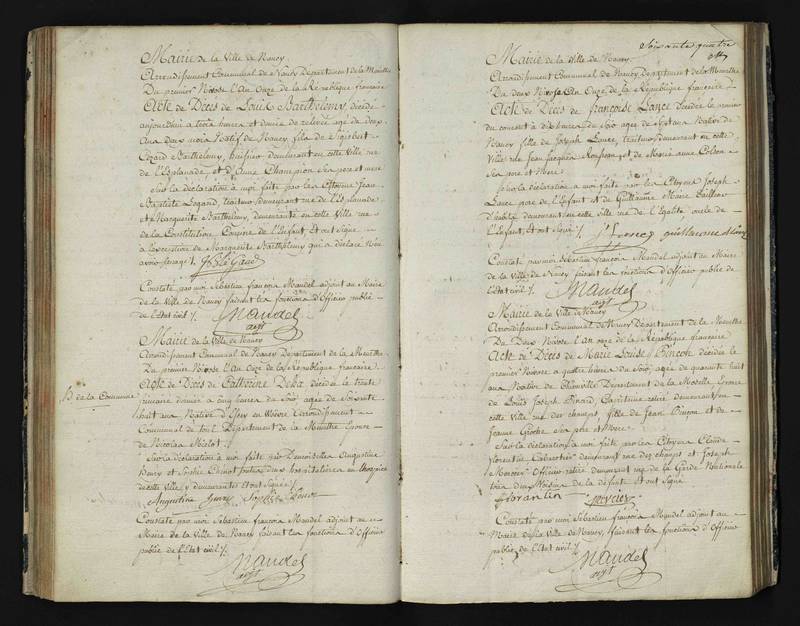 Mairie de la Ville de Nancy
Arrondissement Communal de Nancy Département de la Meurthe
Du premier Nivose l'An Onze de la République française
Acte de Décès de Louis Barthelemy, décédé
aujourd'hui à trois heures et demie de relevée agé de deux
Ans deux mois Natif de Nancy fils de Sigisbert
Barthelemy, huissier demeurant en cette Ville rue
de l'Esplanade, et d'Anne Champion ses pere et mere
Sur la déclaration à moi faite par les Citoyens Jean
Baptiste Legand, traiteur demeurant rue de l'Esplanade
et Marguerite Barthelemy, demeurante en cette Ville rue
de la Constitution Cousine de l'Enfant, Et ont signé
à l'exception de Marguerite Barthelemy qui a déclaré Non
Constaté par moi Sébastien françois Mandel adjoint au Maire
de la Ville de Nancy faisant les fonctions d'Officier public
de l'Etat civil /.
Mandel
adjt
Mairie de la Ville de Nancy
Arrondissement Communal de Nancy Département de la Meurthe
Du premier Nivose l'An Onze de la République française
Acte de Décès de Catherine Deha décédée le trente
frimaire dernier à cinq heures du soir agée de Soixante
huit ans Native d' en Woëvre Arrondissement
Communal de toul Département de la Meurthe Epouse
de Nicolas Miclot /.
Sur la déclaration à moi faite par Demoiselles Augustine
Henry et Sophie toutes deux hospitalieres en
de cette ville y demeurantes Et ont signé /.
Augustine henry Sophie
Constaté par moi Sébastien françois Mandel adjoint au
Maire de la Ville de Nancy faisant les fonctions d'Officier
public de l'Etat civil /.
Mandel
adjt
de la Commune
Soixante quatre
Mairie de la Ville de Nancy
Arrondissement Communal de Nancy Département de la Meurthe
Du deux Nivose l'An Onze de la République française
Acte de Décès de françoise Lance décédée le premier
du courant à dix heures du soir agée de ans Native de
Nancy fille de Joseph Lance, traiteur demeurant en cette
Ville rue Jean Jacques Rousseau, et de Marie anne Colson
ses pere et Mere.
Sur la déclaration à moi faite par les Citoyens Joseph
Lance pere de l'Enfant et de Guillaume Marie
demeurant en cette ville rue de l'Egalité oncle de
l'Enfant, Et ont signé /.
Constaté par moi Sébastien françois Mandel adjoint au Maire
de la Ville de Nancy faisant les fonctions d'Officier public de
l'Etat civil /.
Mandel
adjt
Mairie de la Ville de Nancy
Arrondissement Communal de Nancy Département de la Meurthe
Du Deux Nivose l'an onze de la République française
Acte de Décès de Marie Louise Pinçon décédée le
premier Nivose à quatre heures du soir, agée de quarante huit
ans Native de Département de la Moselle Epouse
de Louis Joseph Binard, retiré demeurant en
cette Ville rue des champs, fille de Jean Pinçon et de
Jeanne ses pere et Mere.
Sur la déclaration à moi faite par les Citoyens Claude
florentin Cabaretier demeurant rue des champs et Joseph
Mercier Officier retiré demeurant rue de la Garde Nationale
tous deux Voisins de la défunte Et ont signé
florantin mercier
Constaté par moi Sébastien françois Mandel adjoint au
Maire de la Ville de Nancy, faisant les fonctions d'Officier
public de l'Etat civil /.
Mandel
adjt